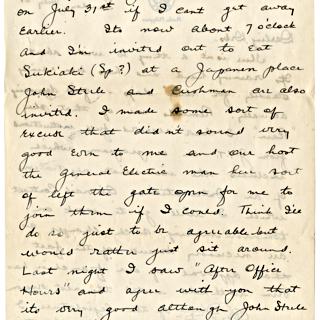 on July 31st if I cant get away
Earlier. Its now about 7 o'clock
and I'm invited out to Eat
Sukiaki (Sp?) at a Japanese place
John Steele and Cushman are also
invited. I made some sort of
Excuse that didn't sound very
good Even to me and our host
the General Electric man here sort
of left the gate open for me to
join them if I could. Think I'll
do so just to be agreeable but
would rather just sit around.
Last night I saw "After Office
Hours" and agree with you that
its very good although John Steele